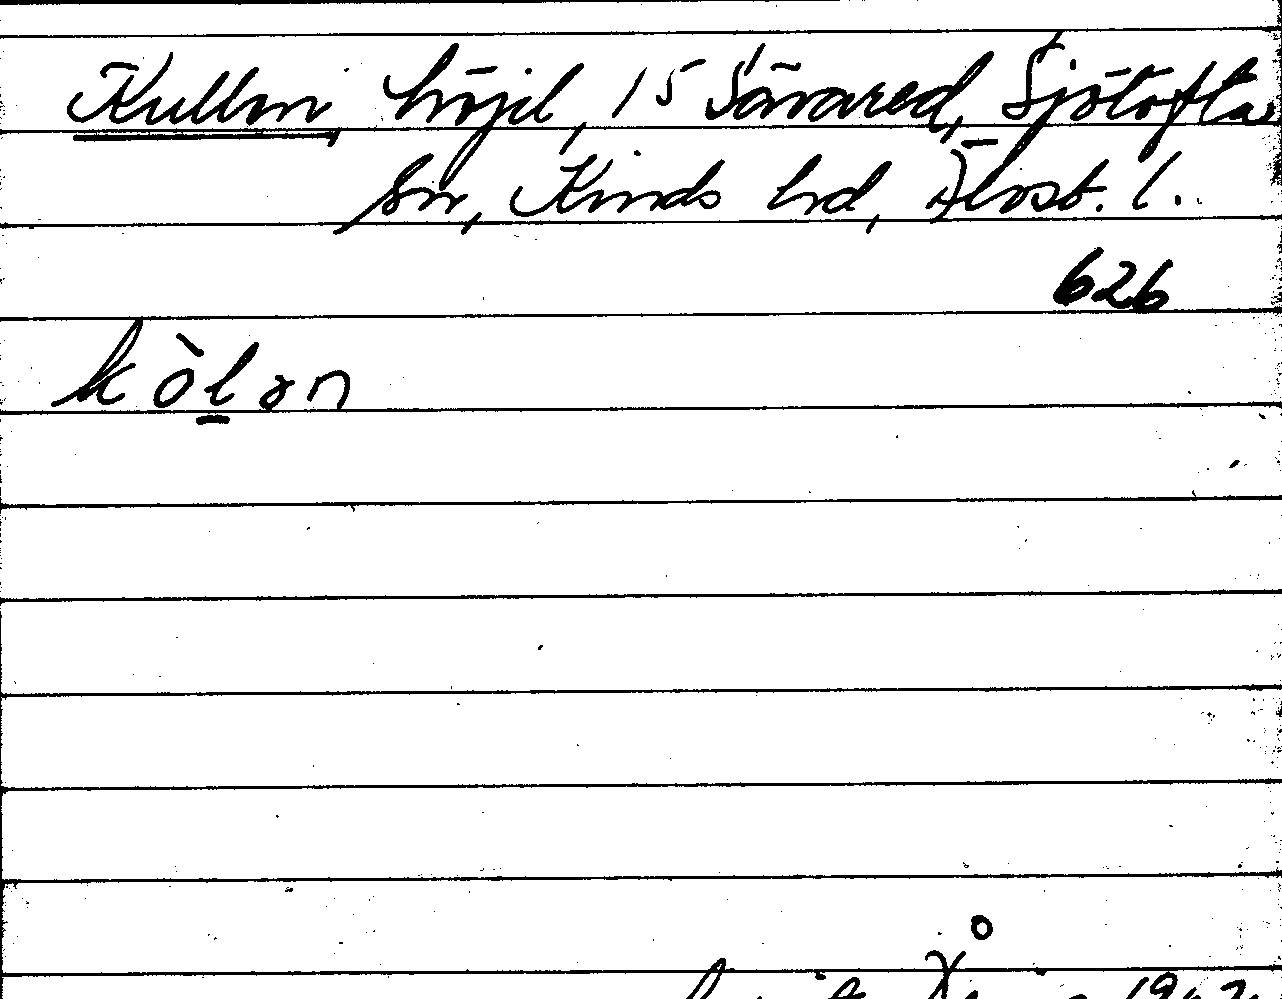 Kullen, höjd, 15 Sävared, Sjötofta
sn, Kinds hd, Älvsb. l.
626
kòl̠ən